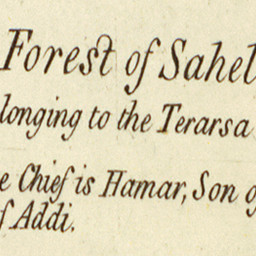 Forest of Sahel
longing to the Terarsa
e Chief is Hamar, Son of
f Addi.